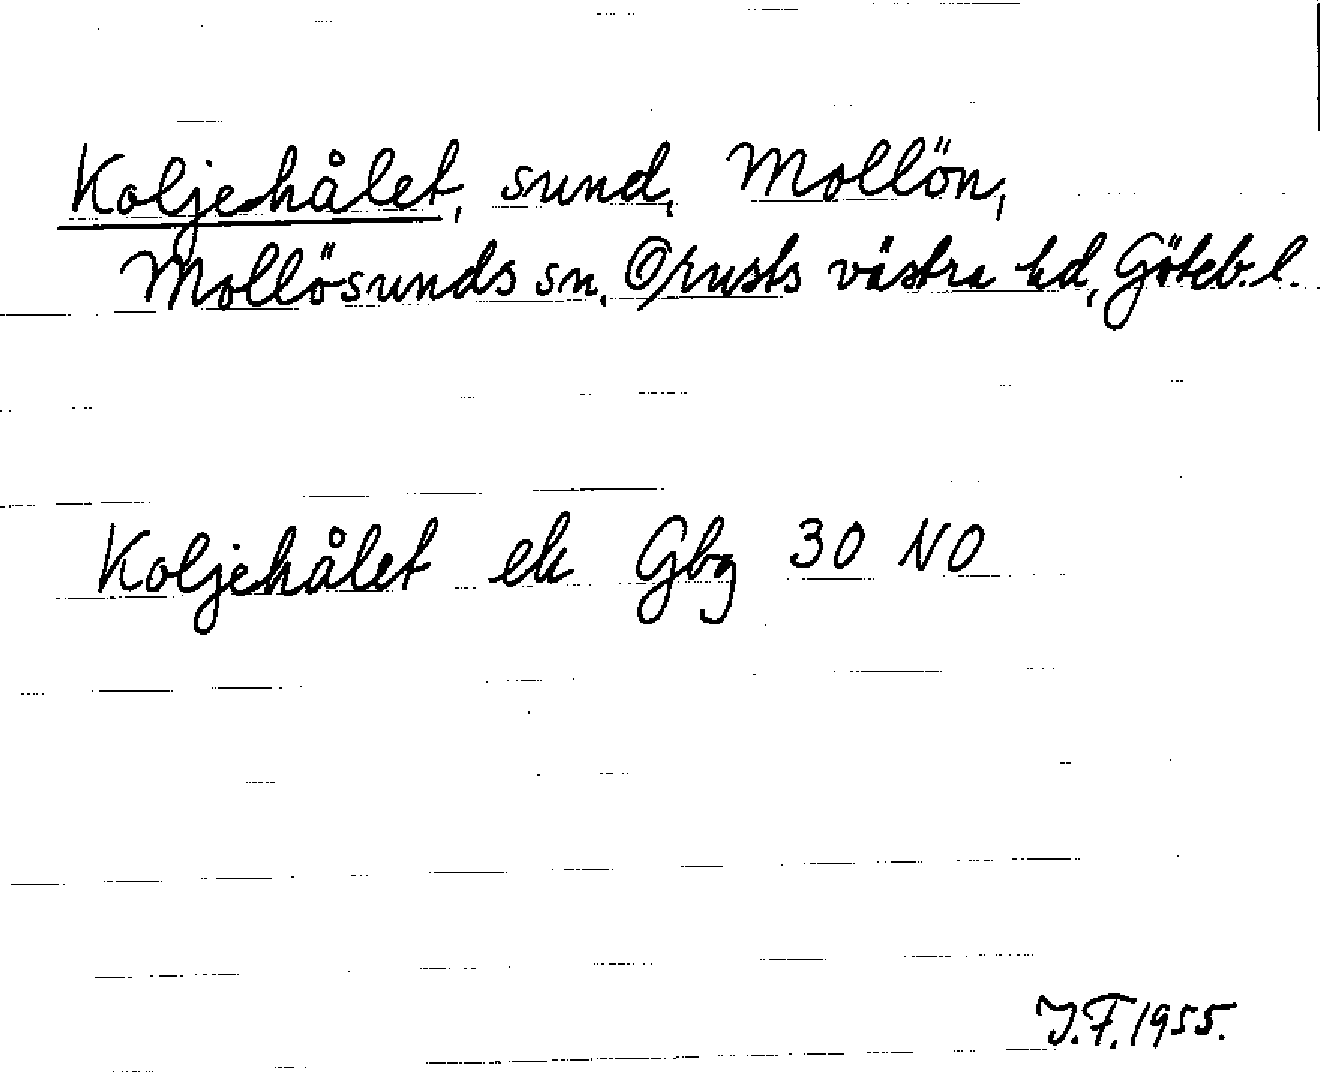 Koljehålet, sund, Mollön,
Mollösunds sn, Orusts västra hd, Göteb. l.
Koljehålet ek Gbg 30 NO
J.F. 1955.